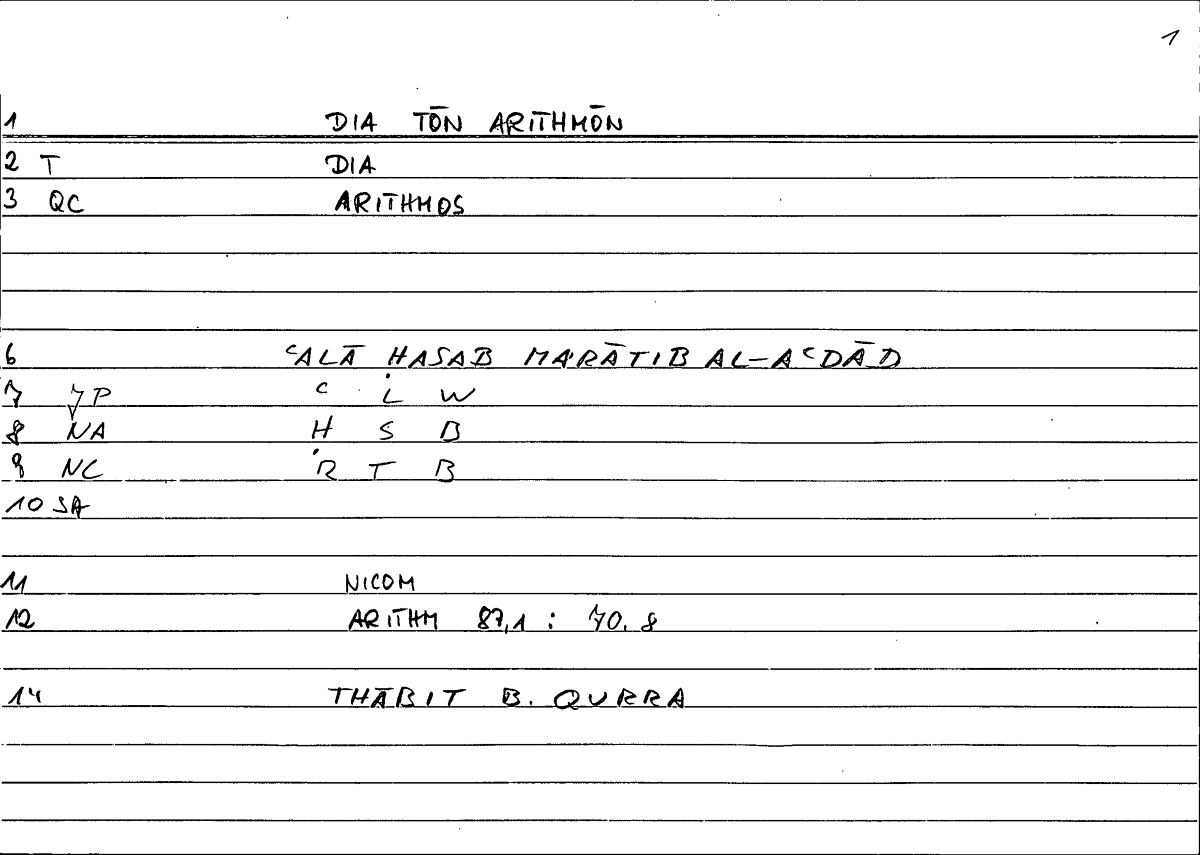 1
1 DIA TŌN ARITHMŌN
2 T DIA
3 QC ARITHMOS
6 ʿALĀ ḤASAB MARĀTIB AL-AʿDĀD
7 JP ʿ L W
8 NA Ḥ S B
9 NC R T B
10 SA
11 NICOM
12 ARITHM 87,1 : 70.8
14 THĀBIT B. QURRA